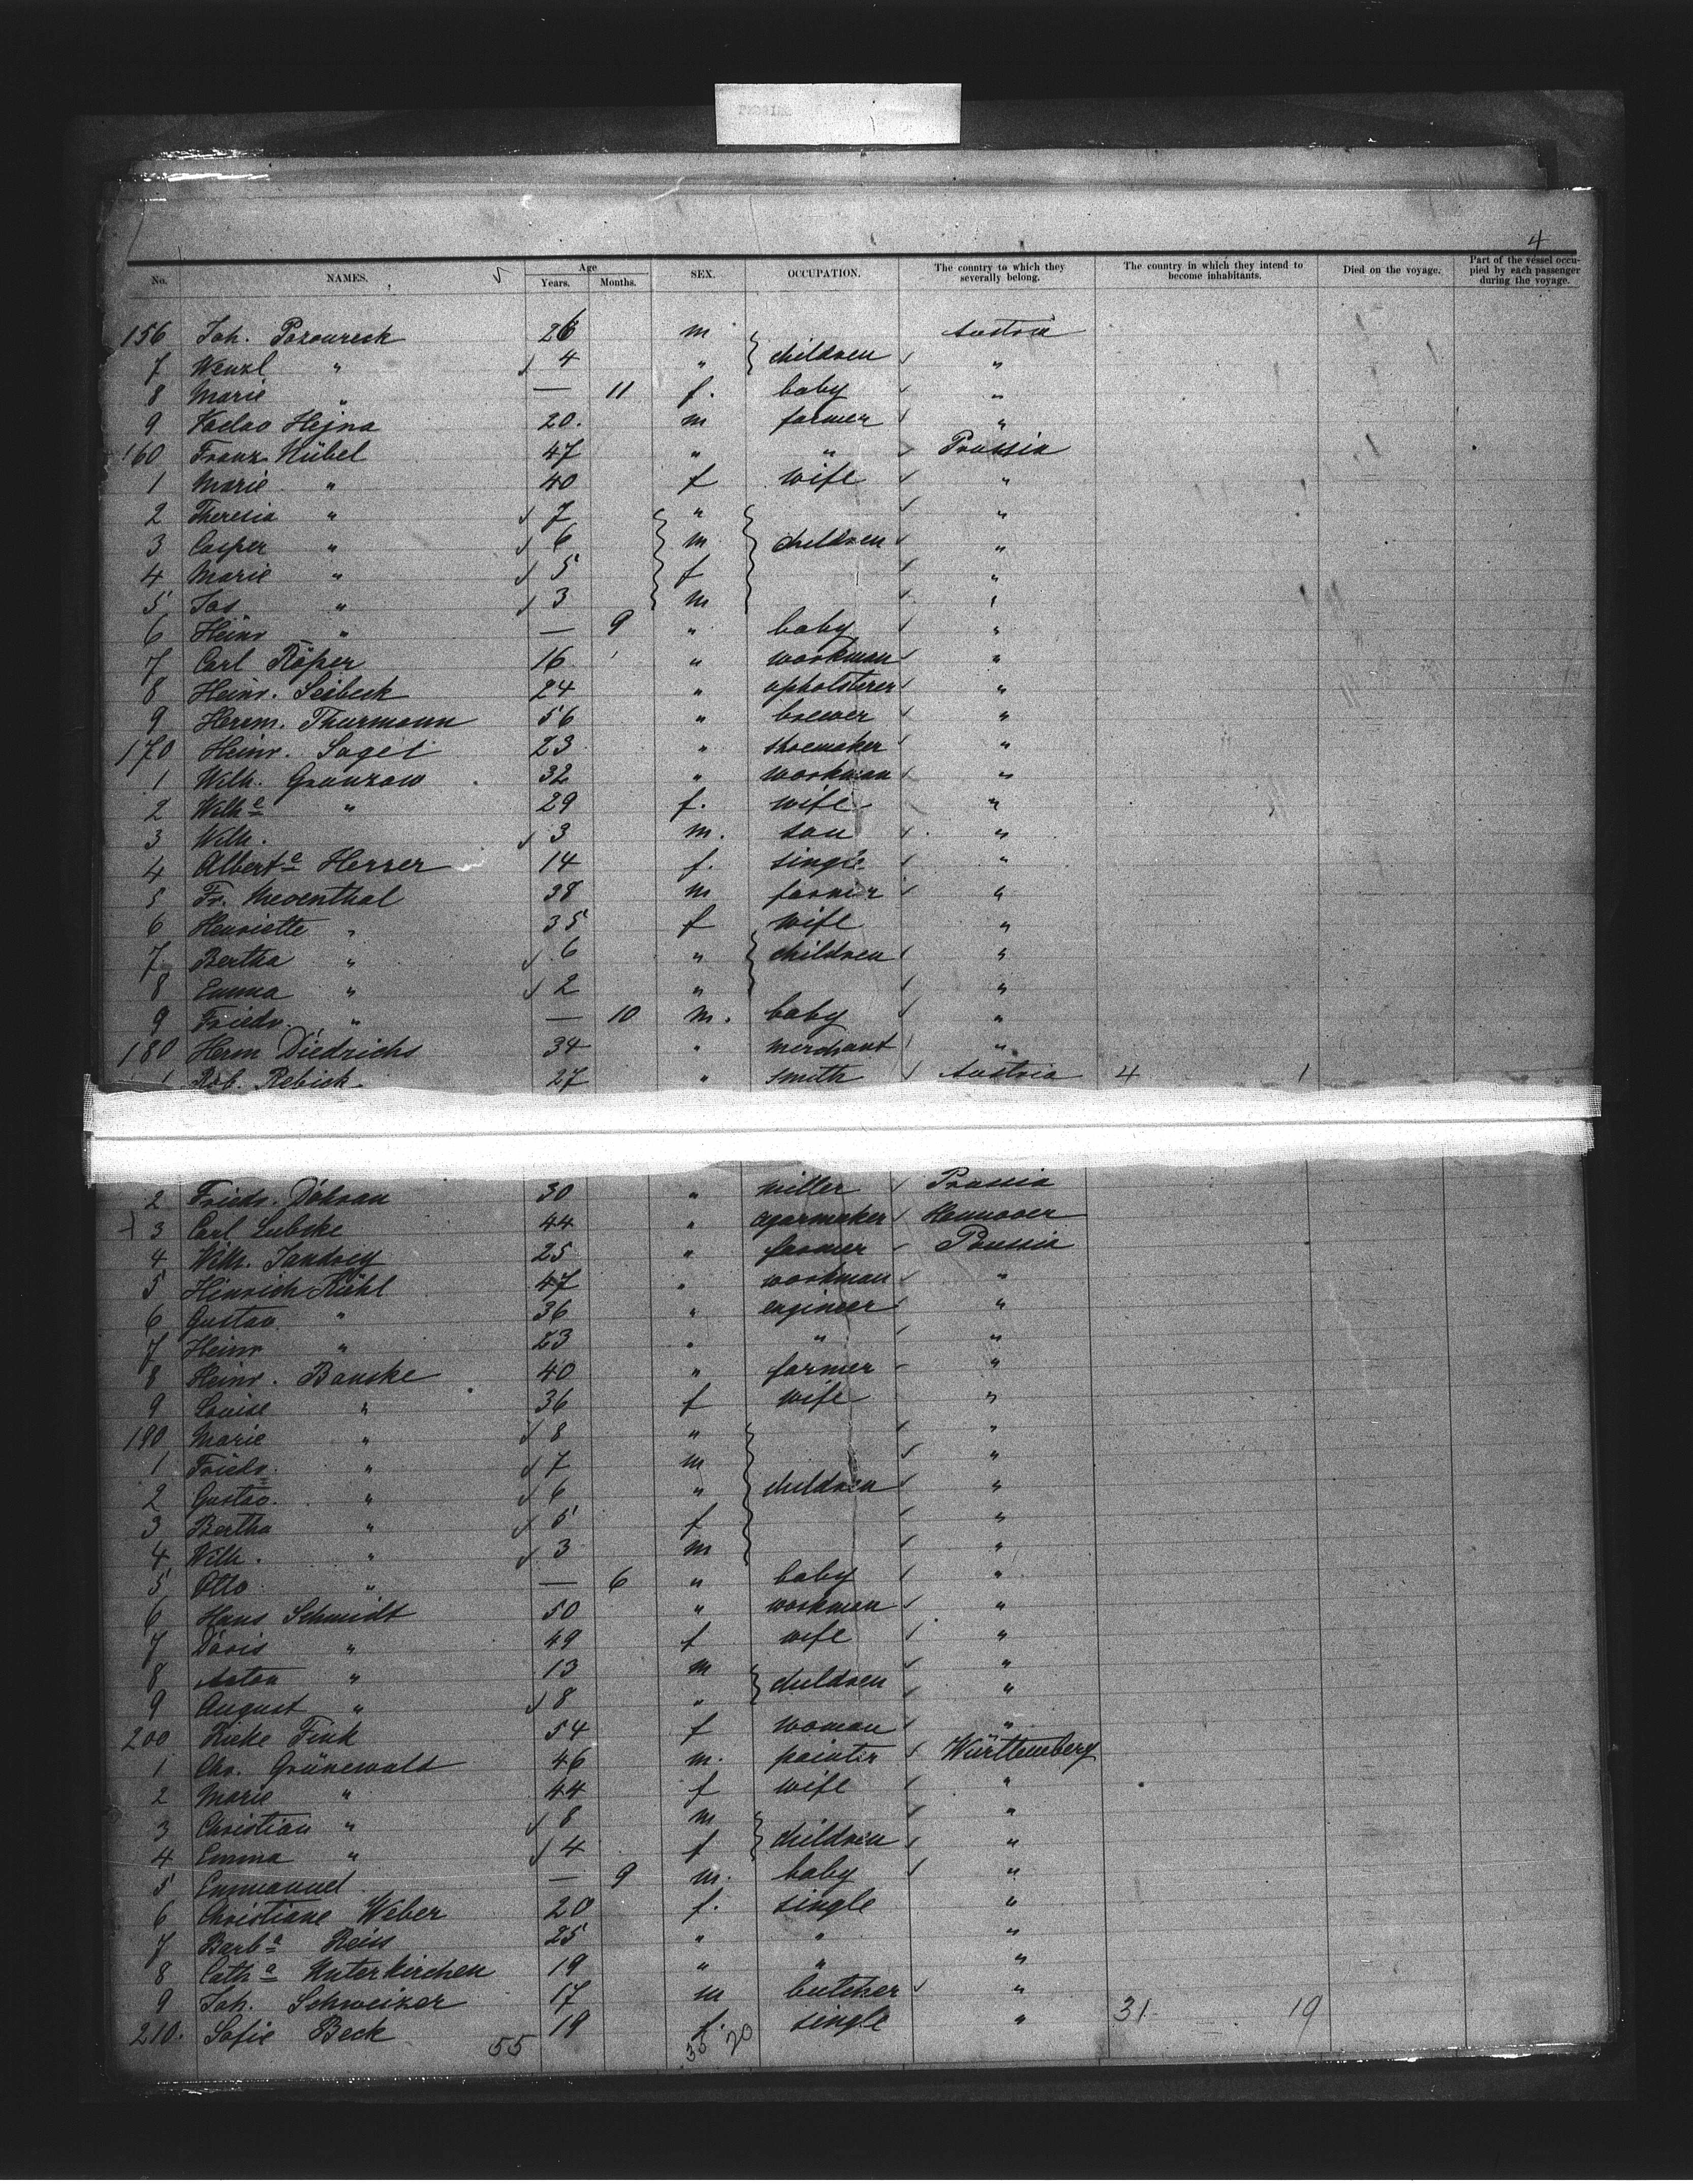 4
No. NAMES. Age Years. Months. SEX. OCCUPATION. The country to which they severally belong. The country in which they intend to become inhabitants. Died on the voyage. Part of the vessel occupied by each passenger during the voyage.
156 Joh. Pozoureck 26 m Austria
7 Wenzl " 4 " children "
8 Marie " — 11 f. baby "
9 Vaclav Hejna 20. m farmer "
160 Franz Hübel 47 " " Prussia
1 Marie " 40 f wife "
2 Theresia " 7 " "
3 Casper " 6 m children "
4 Marie " 5 f "
5 Jos " 3 m "
6 Heinr " — 9 " baby "
7 Carl Röper 16 " workman "
8 Heinr. Seibeck 24 " upholsterer "
9 Herm. Thurmann 56 " brewer "
170 Heinr. Sagel 23 " shoemaker "
1 Wilh. Granzow 32 " workman "
2 Wilhe " 29 f. wife "
3 Wilh. 3 m. son "
4 Alberte Herrer 14 f. single "
5 Fr. Meventhal 38 m farmer "
6 Henriette " 35 f wife "
7 Bertha " 6 " children "
8 Emma " 2 " "
9 Friedr. " — 10 m. baby "
180 Herm Diedrichs 34 " merchant "
1 Rob. Rebick 27 " smith Austria 4 1
2 Friedr. Dobran 30 " miller Prussia
3 Carl Lubcke 44 " cgarmaker Hannover
4 Wilh. Jandrey 25 " farmer Prussia
5 Hinrich Kühl 47 " workman "
6 Gustav " 36 " engineer "
7 Heinr " 23 " " "
8 Heinr. Banske 40 " farmer "
9 Louise " 36 f wife "
190 Marie " 8 " "
1 Friedr. " 7 m "
2 Gustav. " 6 " children "
3 Bertha " 5 f "
4 Wilh. " 3 m "
5 Otto " — 6 " baby "
6 Hans Schmidt 50 " workman "
7 Doris " 49 f wife "
8 Anton " 13 m children "
9 August " 8 " "
200 Rieke Fink 54 f woman "
1 Chr. Grünewald 46 m. painter Württemberg
2 Marie " 44 f wife "
3 Christian " 8 m "
4 Emma " 4 f children "
5 Emmanuel — 9 m. baby "
6 Christiane Weber 20 f. single "
7 Barba Reiss 25 " " "
8 Catha Unterkirchen 19 " " "
9 Joh. Schweizer 17 m butcher "
210. Sofie Beck 19 f. single " 31 19
55 35 20